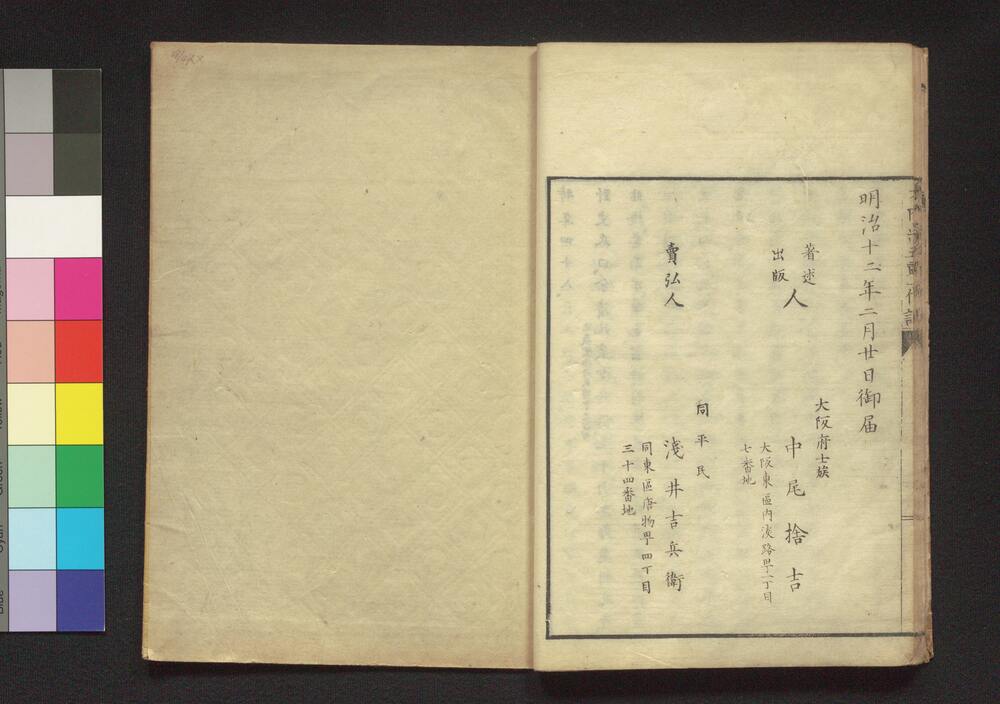 明治十二年二月廿日御届
著述
出版
人
大阪府士族
中尾捨吉
大阪東區内淡路町二丁目
七番地
賣弘人
同平民
淺井吉兵衛
同東區唐物町四丁目
三十四番地